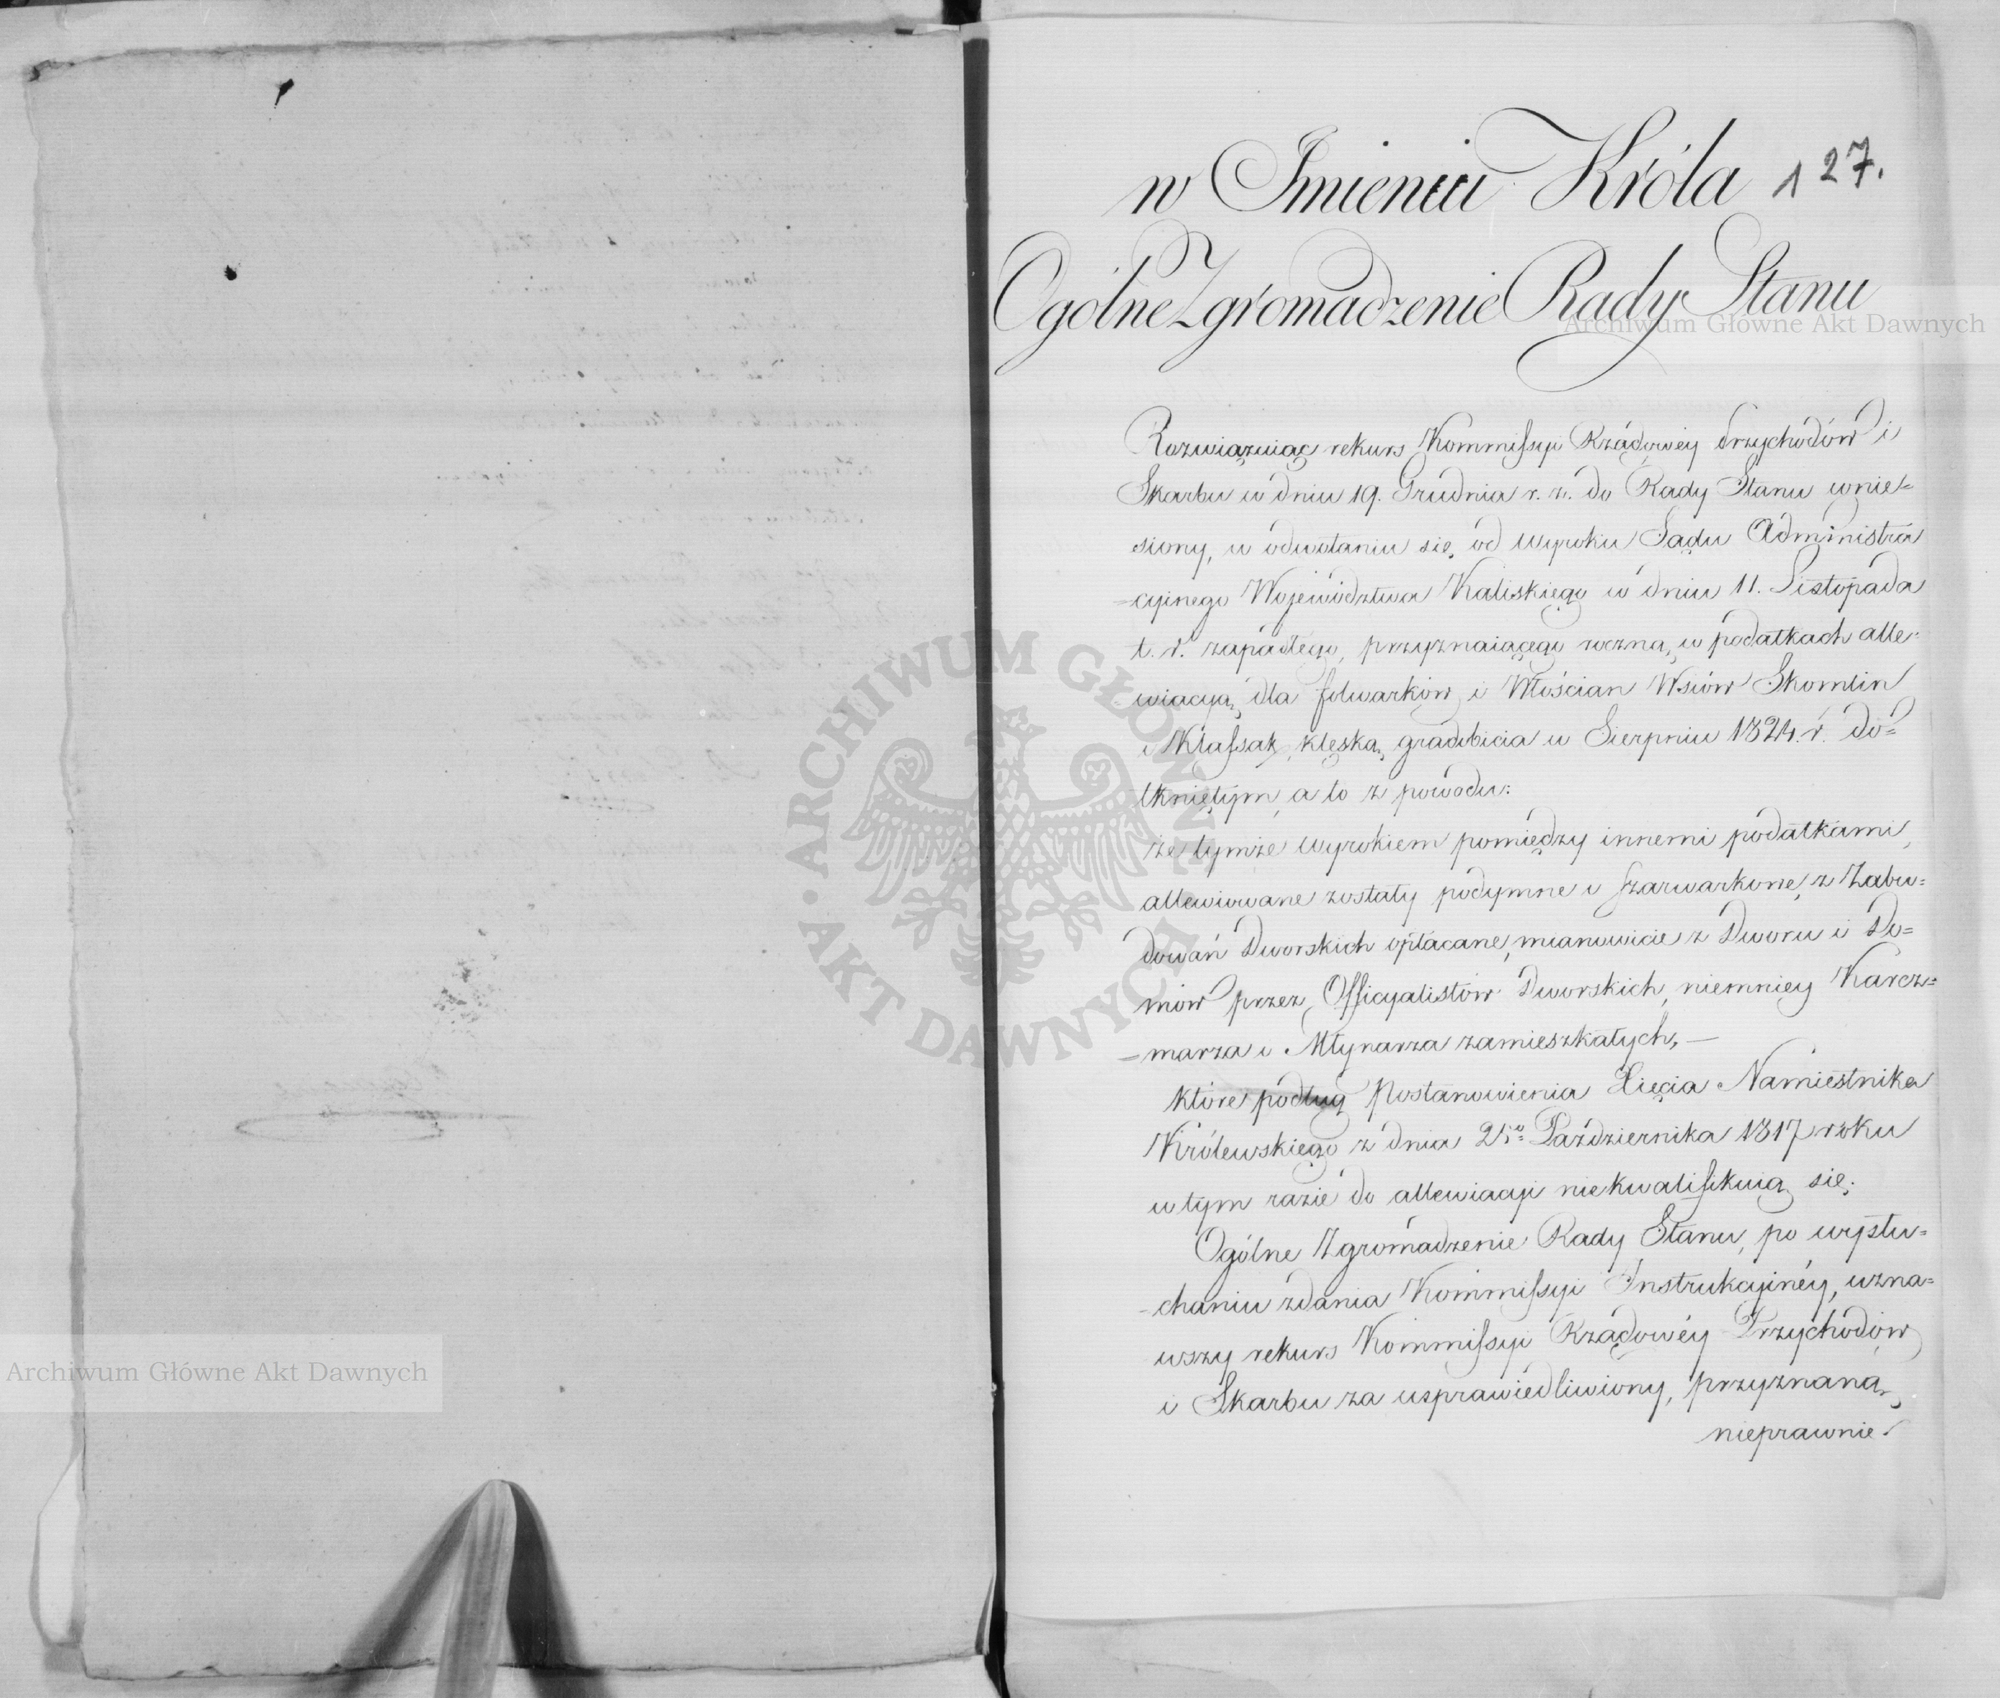 127.
w Imieniu Króla
Ogólne Zgromadzenie Rady Stanu
Rozwiązuiąc rekurs Kommissyi Rządowéy Przychodów i
Skarbu w dniu 19. Grudnia r. z. do Rady Stanu wnie=
siony, w odwołaniu się od wyroku Sądu Administra
=cyinego Województwa Kaliskiego w dniu 11. Listopada
t. r. zapadłego, przyznaiącego roczną w podatkach alle=
wiacyą dla folwarków i Włościan Wsiów Skomlin
i Klassak klęską gradobicia w Sierpniu 1824. r. do=
tkniętym, a to z powodu:
że tymże wyrokiem pomiędzy innemi podatkami,
allewiowane zostały podymne i szarwarkowe z Zabu=
dowań Dworskich opłacane, mianowicie z Dworu i Do=
mów przez Officyalistów Dworskich, niemniey Karcz=
=marza i Młynarza zamieszkałych, —
które podług Postanowienia Xięcia Namiestnika
Królewskiego z dnia Października 1817 roku
w tym razie do allewiacyi niekwalifikuią się;
Ogólne Zgromadzenie Rady Stanu, po wysłu=
chaniu zdania Kommissyi Instrukcyinéy, uzna=
wszy rekurs Kommissyi Rządowéy Przychodów
i Skarbu za usprawiedliwiony, przyznaną
nieprawnie
Archiwum Główne Akt Dawnych
Archiwum Główne Akt Dawnych
ARCHIWUM GŁÓWNE · AKT DAWNYCH ·